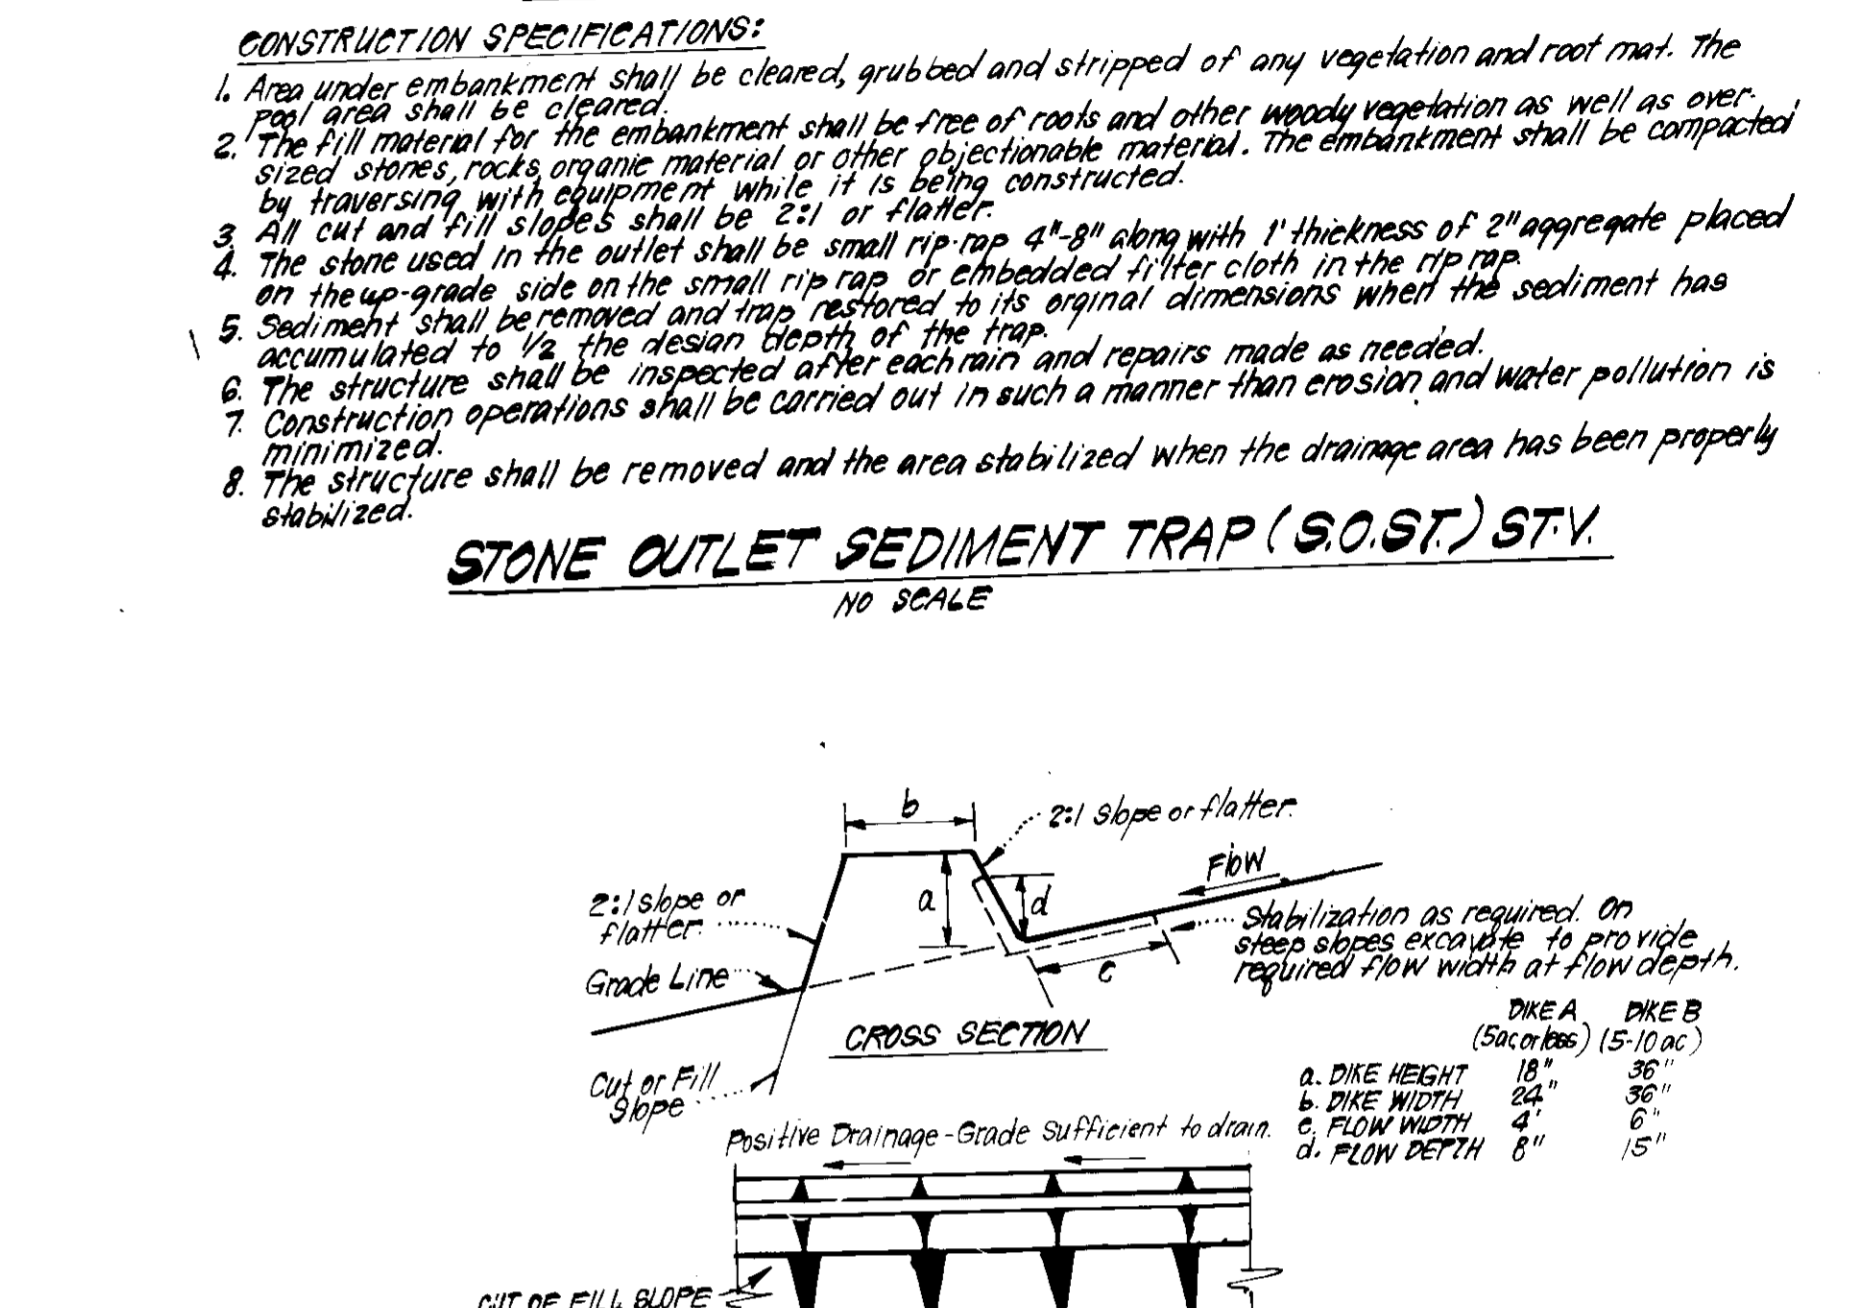 CONSTRUCTION SPECIFICATIONS:
1. Area under embankment shall be cleared, grubbed and stripped of any vegetation and root mat. The
pool area shall be cleared.
2. The fill material for the embankment shall be free of roots and other woody vegetation as well as over-
sized stones, rocks, organic material or other objectionable material. The embankment shall be compacted
by traversing with equipment while it is being constructed.
3. All cut and fill slopes shall be 2:1 or flatter.
4. The stone used in the outlet shall be small rip-rap 4"-8" along with 1' thickness of 2" aggregate placed
on the up-grade side on the small rip rap or embedded filter cloth in the rip rap.
5. Sediment shall be removed and trap restored to its orginal dimensions when the sediment has
accumulated to 1/2 the design depth of the trap.
6. The structure shall be inspected after each rain and repairs made as needed.
7. Construction operations shall be carried out in such a manner than erosion and water pollution is
minimized.
8. The structure shall be removed and the area stabilized when the drainage area has been properly
stabilized.
STONE OUTLET SEDIMENT TRAP (S.O.S.T.) ST-V.
NO SCALE
b
2:1 slope or flatter.
Flow
2:1 slope or
flatter.
a
d
Stabilization as required. On
steep slopes excavate to provide
required flow width at flow depth.
Grade Line
c
CROSS SECTION
Cut or Fill
Slope
DIKE A DIKE B
(5ac. or less) (5-10 ac)
a. DIKE HEIGHT 18" 36"
b. DIKE WIDTH 24" 36"
c. FLOW WIDTH 4' 6"
d. FLOW DEPTH 8" 15"
Positive Drainage-Grade Sufficient to drain.
CUT OF FILL SLOPE